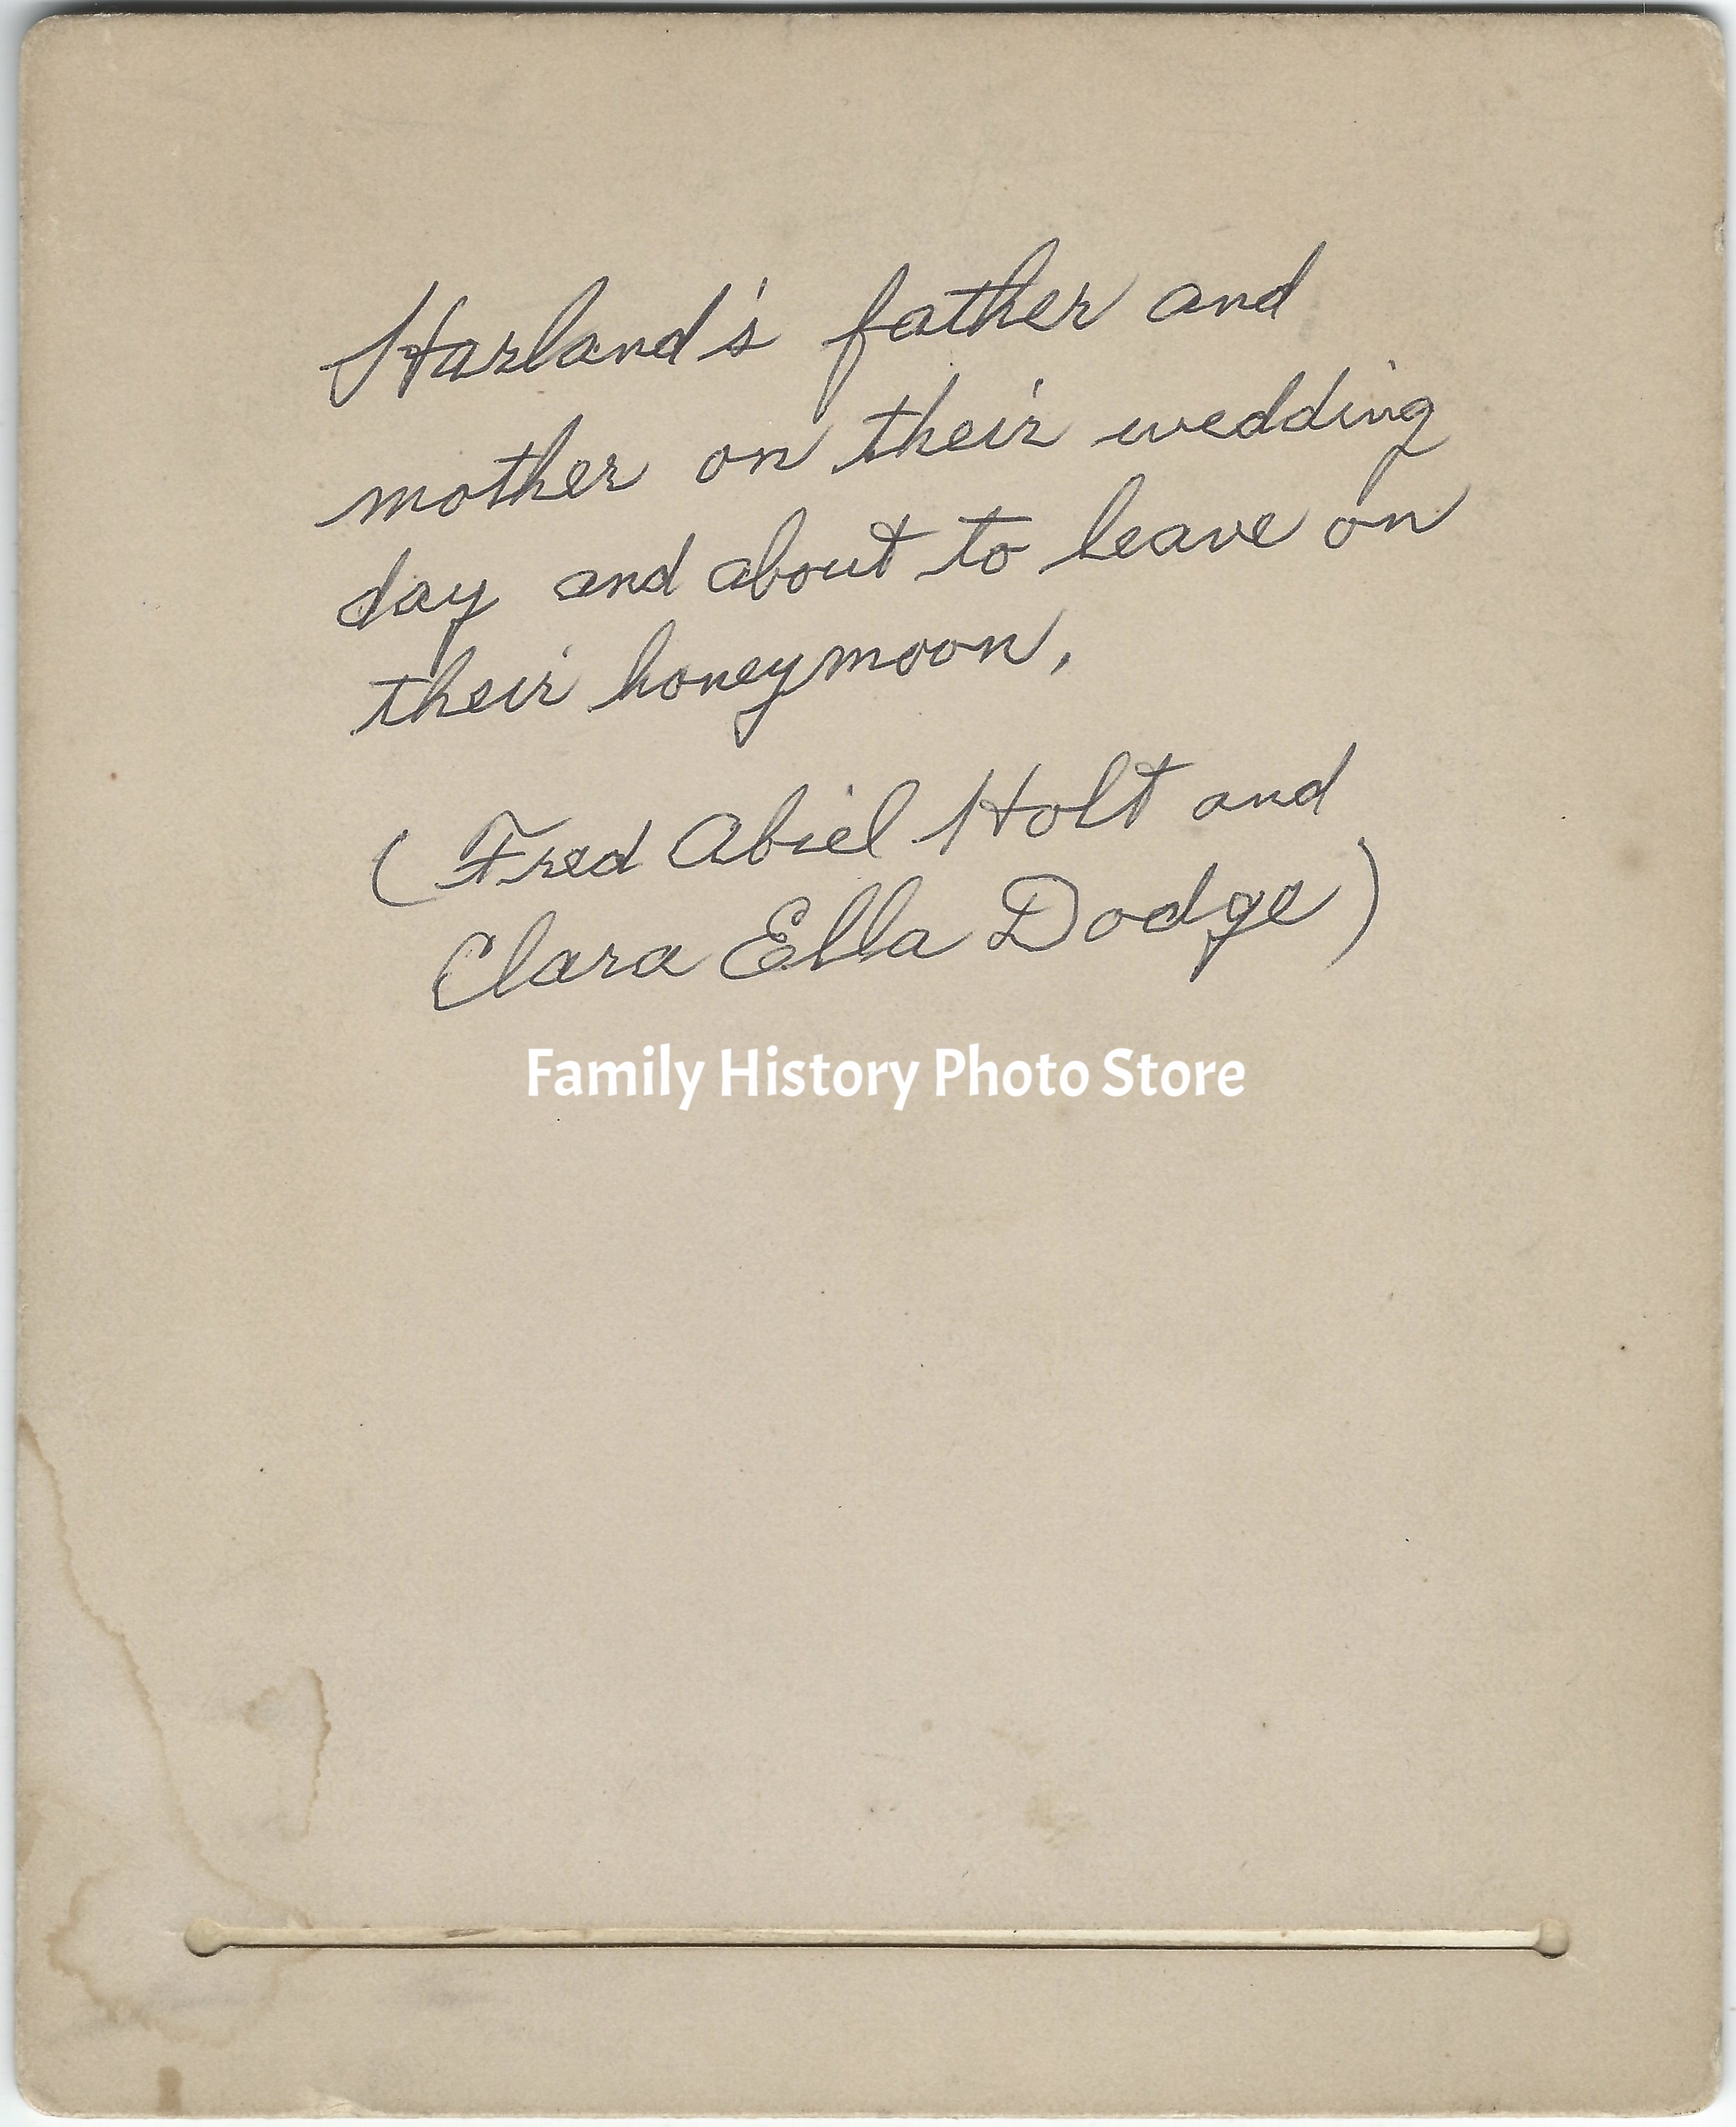 Harland's father and
mother on their wedding
day and about to leave on
their honeymoon.
(Fred Abiel Holt and
Clara Ella Dodge)
Family History Photo Store